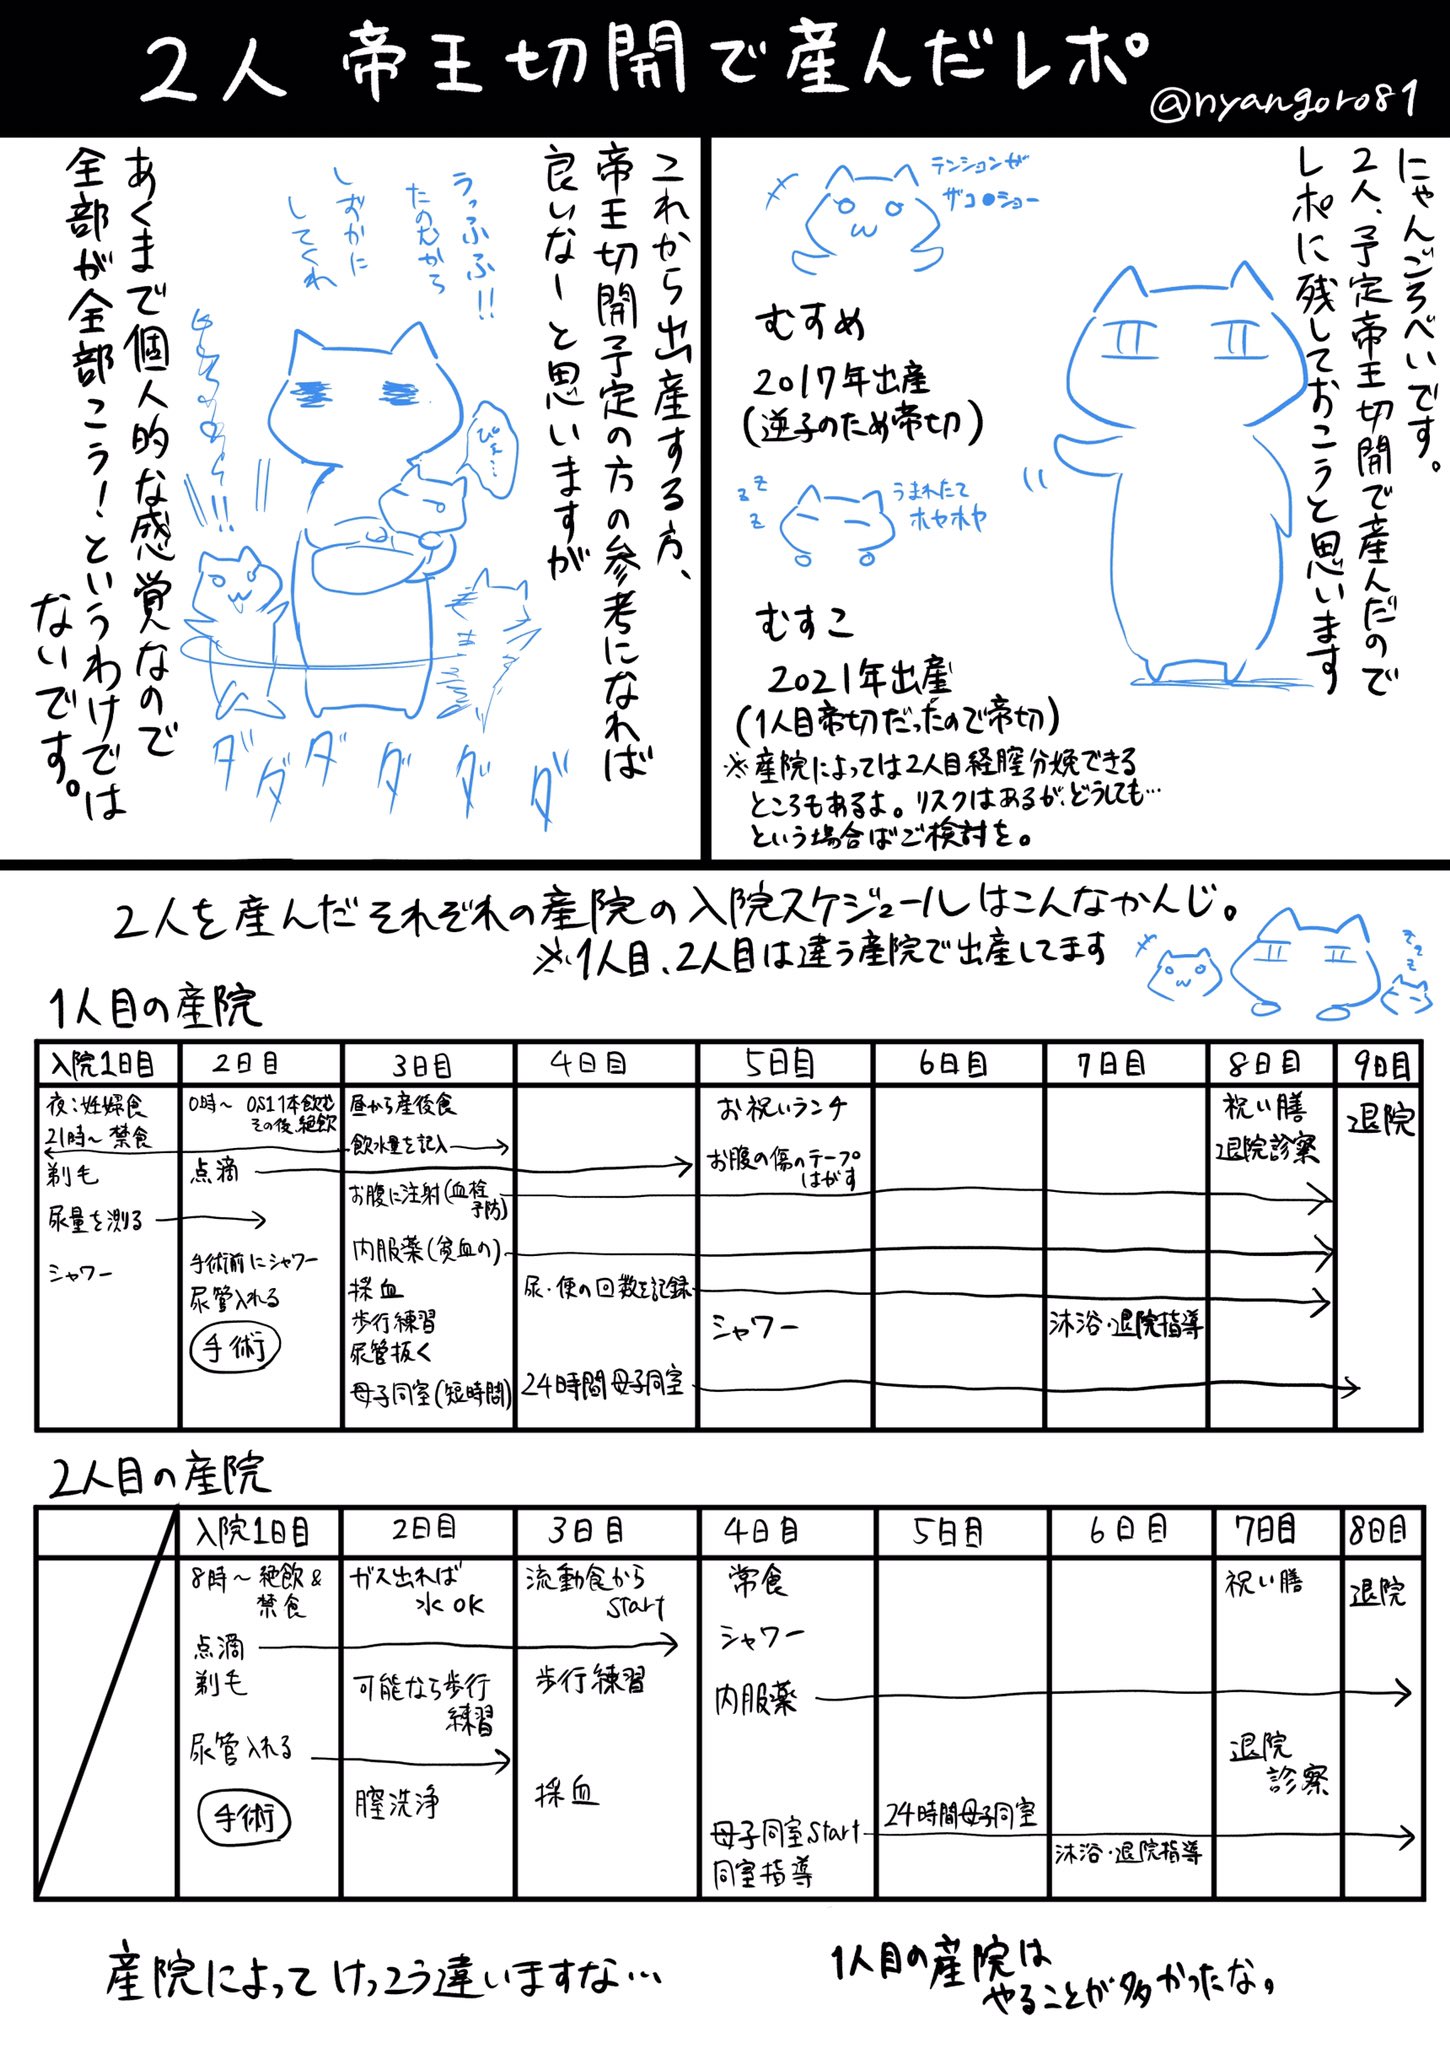 2人 帝王切開で産んだレポ
@nyangoro81
にゃんごろべいです。
2人、予定帝王切開で産んだので
レポに残しておこうと思います
テンションが
ザコ●ショー
むすめ
2017年出産
(逆子のため帝切)
うまれたて
ホヤホヤ
zzz
むすこ
2021年出産
(1人目帝切だったので帝切)
※産院によっては2人目経腟分娩できる
ところもあるよ。リスクはあるが、どうしても…
という場合はご検討を。
これから出産する方、
帝王切開予定の方の参考になれば
良いなーと思いますが
うっふふ!!
たのむから
しずかに
してくれ
ぴぇ…
ダダダダダダ
あくまで個人的な感覚なので
全部が全部こう!というわけでは
ないです。
2人を産んだそれぞれの産院の入院スケジュールはこんなかんじ。
※1人目、2人目は違う産院で出産してます
zzz
1人目の産院
入院1日目 2日目 3日目 4日目 5日目 6日目 7日目 8日目 9日目
夜:妊婦食
21時~禁食
剃毛
尿量を測る
シャワー
0時~ OS1 1本飲む
その後、絶飲
点滴
手術前にシャワー
尿管入れる
手術
昼から産後食
飲水量を記入
お腹に注射(血栓
予防)
内服薬(貧血の)
採血
歩行練習
尿管抜く
母子同室(短時間)
尿・便の回数を記録
24時間母子同室
お祝いランチ
お腹の傷のテープ
はがす
シャワー
沐浴・退院指導
祝い膳
退院診察
退院
2人目の産院
入院1日目 2日目 3日目 4日目 5日目 6日目 7日目 8日目
8時~絶飲&
禁食
点滴
剃毛
尿管入れる
手術
ガス出れば
水OK
可能なら歩行
練習
膣洗浄
流動食から
start
歩行練習
採血
常食
シャワー
内服薬
母子同室start
同室指導
24時間母子同室
沐浴・退院指導
祝い膳
退院
診察
退院
産院によってけっこう違いますな…
1人目の産院は
やることが多かったな。